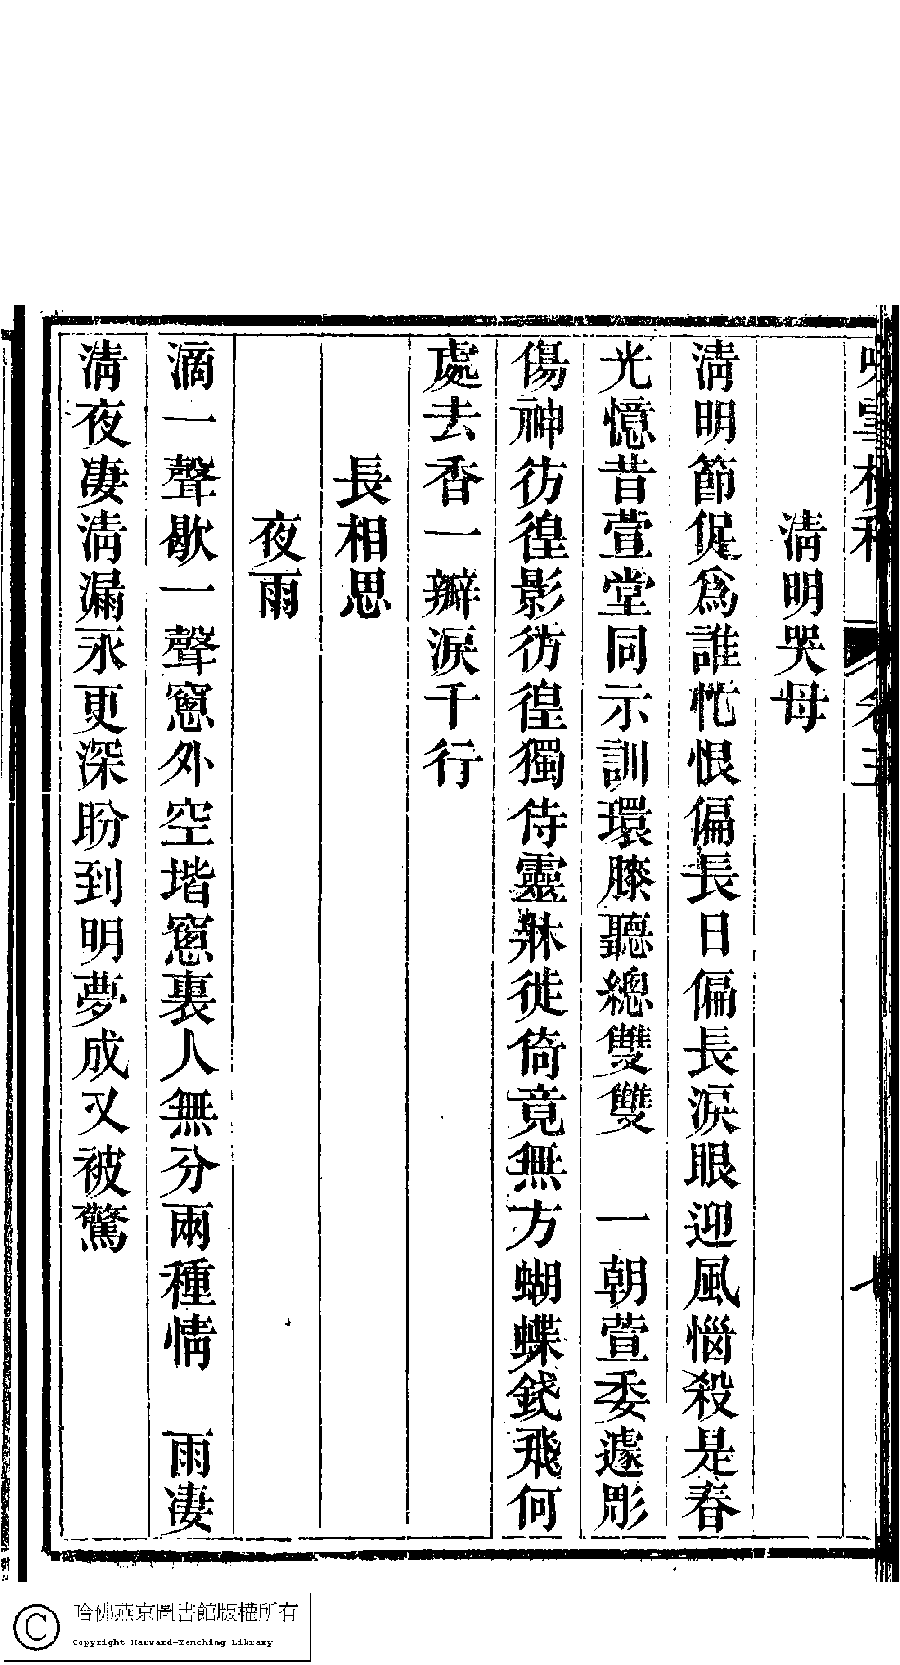 清明哭母
清明節促爲誰忙恨偏長日偏長淚眼迎風惱殺是春
光憶昔萱堂同示訓環膝聽總雙雙　一朝萱委遽彫
傷神彷徨影彷徨獨侍靈牀徙倚竟無方蝴蝶錢飛何
處去香一瓣淚千行
長相思
夜雨
滴一聲歇一聲窻外空堦窻裏人無分兩種情　雨淒
清夜淒清漏永更深盼到明夢成又被驚
哈佛燕京圖書館版權所有
Copyright Harvard-Yenching Library